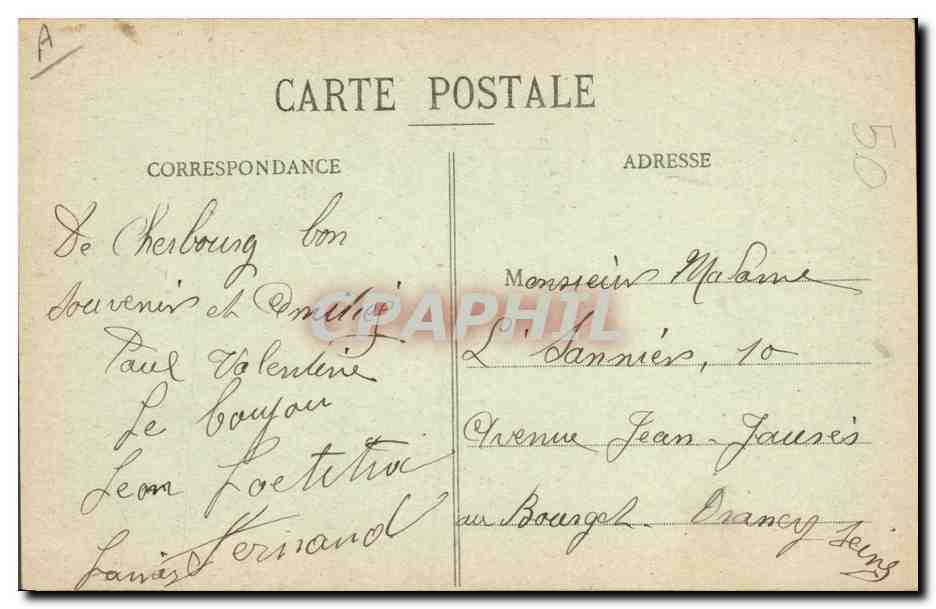 A
CARTE POSTALE
50
CORRESPONDANCE
De Cherbourg bon
souvenir et Amitiés
Paul Valentine
Le
Leon Laetitia
Fernand
ADRESSE
Monsieur Madame
10
Avenue Jean-Jaurès
au Bourget-Drancy
Seine
CPAPHIL